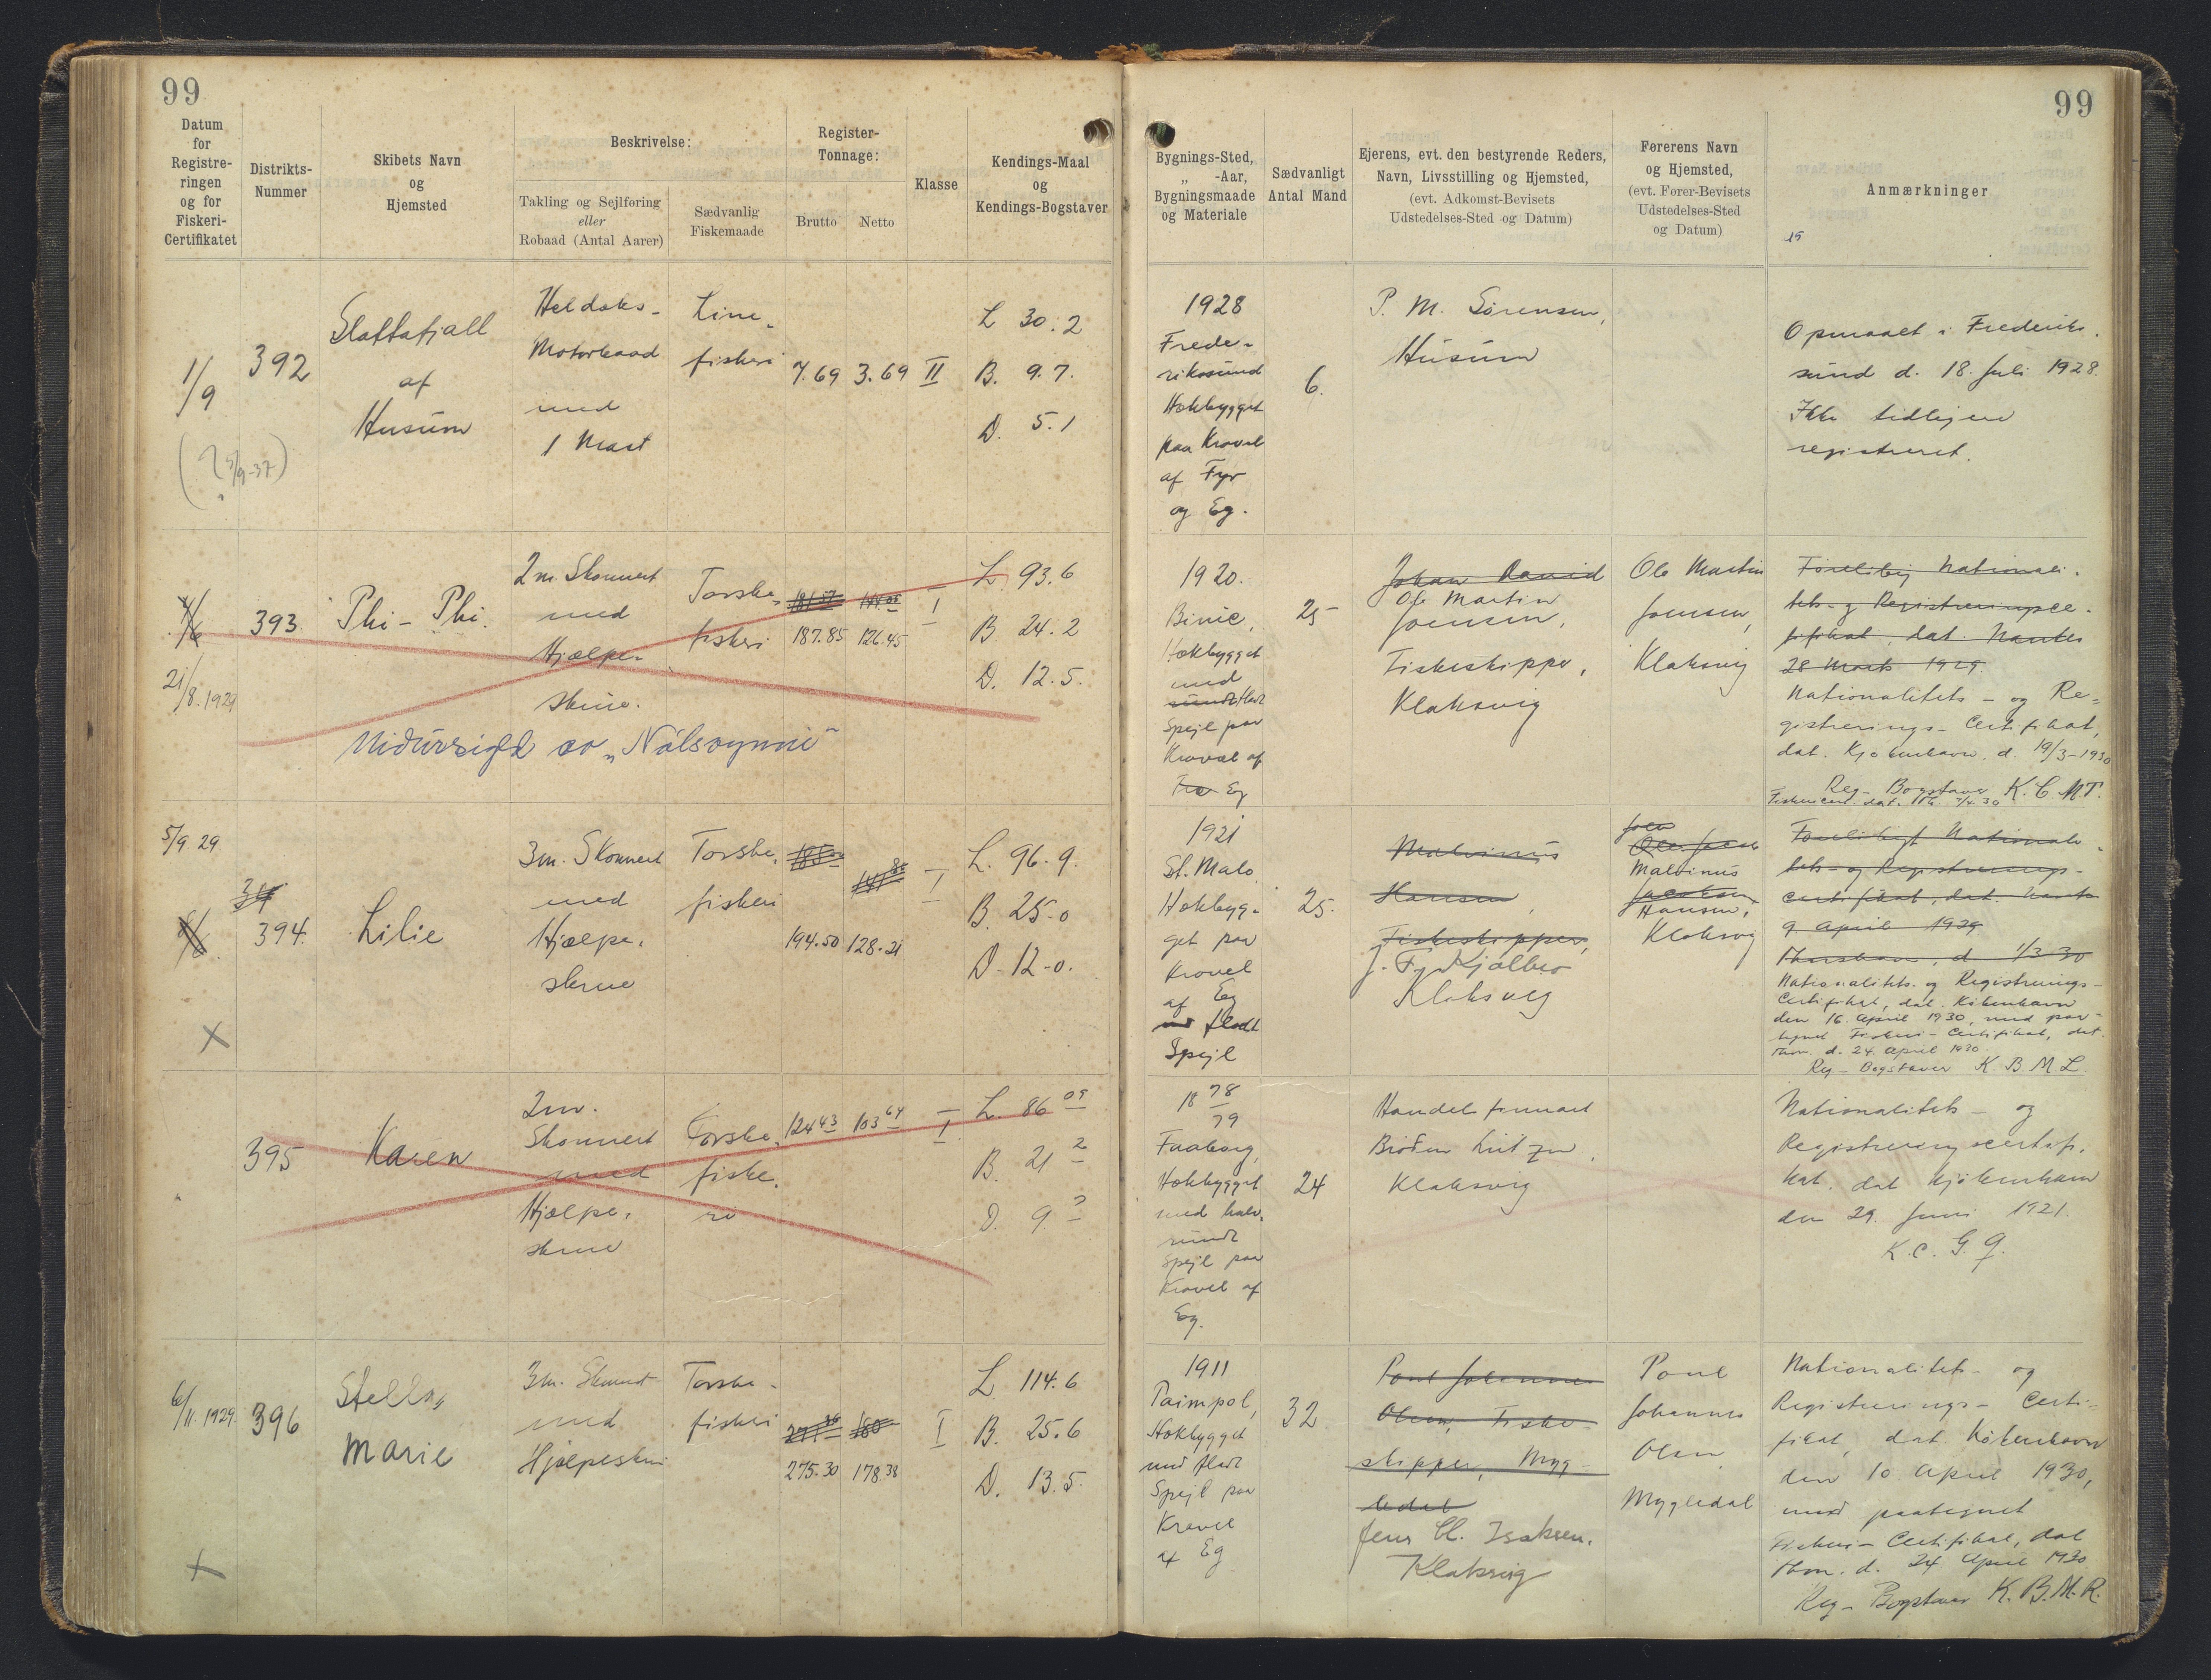 99
99
Datum
for
Registre-
ringen
og for
Fiskeri-
Certifikatet
Distrikts-
Nummer
Skibets Navn
og
Hjemsted
Beskrivelse:
Takling og Sejlføring
eller
Robaad (Antal Aarer)
Sædvanlig
Fiskemaade
Register-
Tonnage:
Brutto
Netto
Klasse
Kendings-Maal
og
Kendings-Bogstaver
Bygnings-Sted,
„ -Aar,
Bygningsmaade
og Materiale
Sædvanligt
Antal Mand
Ejerens, evt. den bestyrende Reders,
Navn, Livsstilling og Hjemsted,
(evt. Adkomst-Bevisets
Udstedelses-Sted og Datum)
Førerens Navn
og Hjemsted,
(evt. Fører-Bevisets
Udstedelses-Sted
og Datum)
Anmærkninger
15
1/9
(? 5/9-37)
392
Slattafjall
af
Husum
Heldæks-
Motorbaad
med
1 Mast
Line-
fiskeri
7.69
3.69
II
L 30.2
B. 9.7.
D. 5.1
1928
Frede-
rikssund
Hækbygget
paa Kravel
af Fyr
og Eg.
6.
P. M. Sørensen,
Husum
Opmaalt i Frederiks-
sund d. 18. Juli 1928.
Ikke tidligere
registreret.
21/8.1929
393.
Phi-Phi.
2 m. Skonnert
med
Hjælpe-
skrue.
Torske-
fiskeri
187.85
126.45
I
L. 93.6
B 24.2
D. 12.5.
Niðursigld av „Nólsoynni"
1920.
Binic,
Hækbygget
med
fladt
Spejl paa
Kravel af
Eg
25
Johan David
Ole Martin
Joensen,
Fiskeskipper,
Klaksvig
Ole Martin
Joensen,
Klaksvig
Foreløbig Nationali-
tets- og Registreringsce-
tifikat, dat. Nantes
28 Marts 1929.
Nationalitets- og Re-
gistrerings-Certifikat,
dat. Kjøbenhavn, d. 19/3-1930
Reg-Bogstaver K.C.M.T.
5/9 29.
394.
Lilie
3m. Skonnert
med
Hjælpe-
skrue
Torske-
fiskeri
194.50
128.21
I
L. 96.9.
B. 25-0
D-12-0.
1921
St. Malo
Hækbyg-
get paa
Kravel
af Eg
med fladt
Spejl
25.
Malvinus
Hansen,
Fiskeskipper,
J. F. Kjølbro
Klaksvig
Malvinus
Jacobsen
Hansen,
Klaksvig
Foreløbigt Nationali-
tets- og Registrerings-
certifikat, dat. Nantes
9. April 1929
Thorshavn, d. 1/3 30
Nationalitets- og Registrerings-
Certifikat, dat. København
den 16. April 1930, med paa-
tegnet Fiskeri-Certifikat, dat.
Thvn. d. 24. April 1930.
Reg-Bogstaver K. B. M. L.
395
Karen
2m.
Skonnert
med
Hjælpe-
skrue
Torske-
fiske-
ri
124.43
103.64
I
L. 86.09
B. 21.2
D. 9.3
1878/79
Faaborg,
Hækbygget
med halv-
rundt
Spejl paa
Kravel af
Eg.
24
Handelsfirmaet
Brødr. Lützen,
Klaksvig
Nationalitets- og
Registreringscertifi-
kat, dat Kjøbenhavn
den 29. Juni 1921.
K.C.G.J.
6/11.1929.
396
Stella
Marie
3m. Skonnert
med
Hjælpeskrue
Torske-
fiskeri
275.30
178.38
I
L 114.6
B. 25.6
D. 13.5.
1911
Paimpol,
Hækbygget
med fladt
Spejl paa
Kravel
af Eg
32
Poul Johannes
Olsen, Fiske-
skipper, Myg-
ledal
Jens Chl. Isaksen.
Klaksvig
Poul
Johannes
Olsen,
Mygledal
Nationalitets- og
Registrerings-Certi-
fikat, dat. København
den 10 April 1930,
med paategnet
Fiskeri-Certifikat, dat
Thvn. d. 24 April 1930
Reg-Bogstaver K.B.M.R.